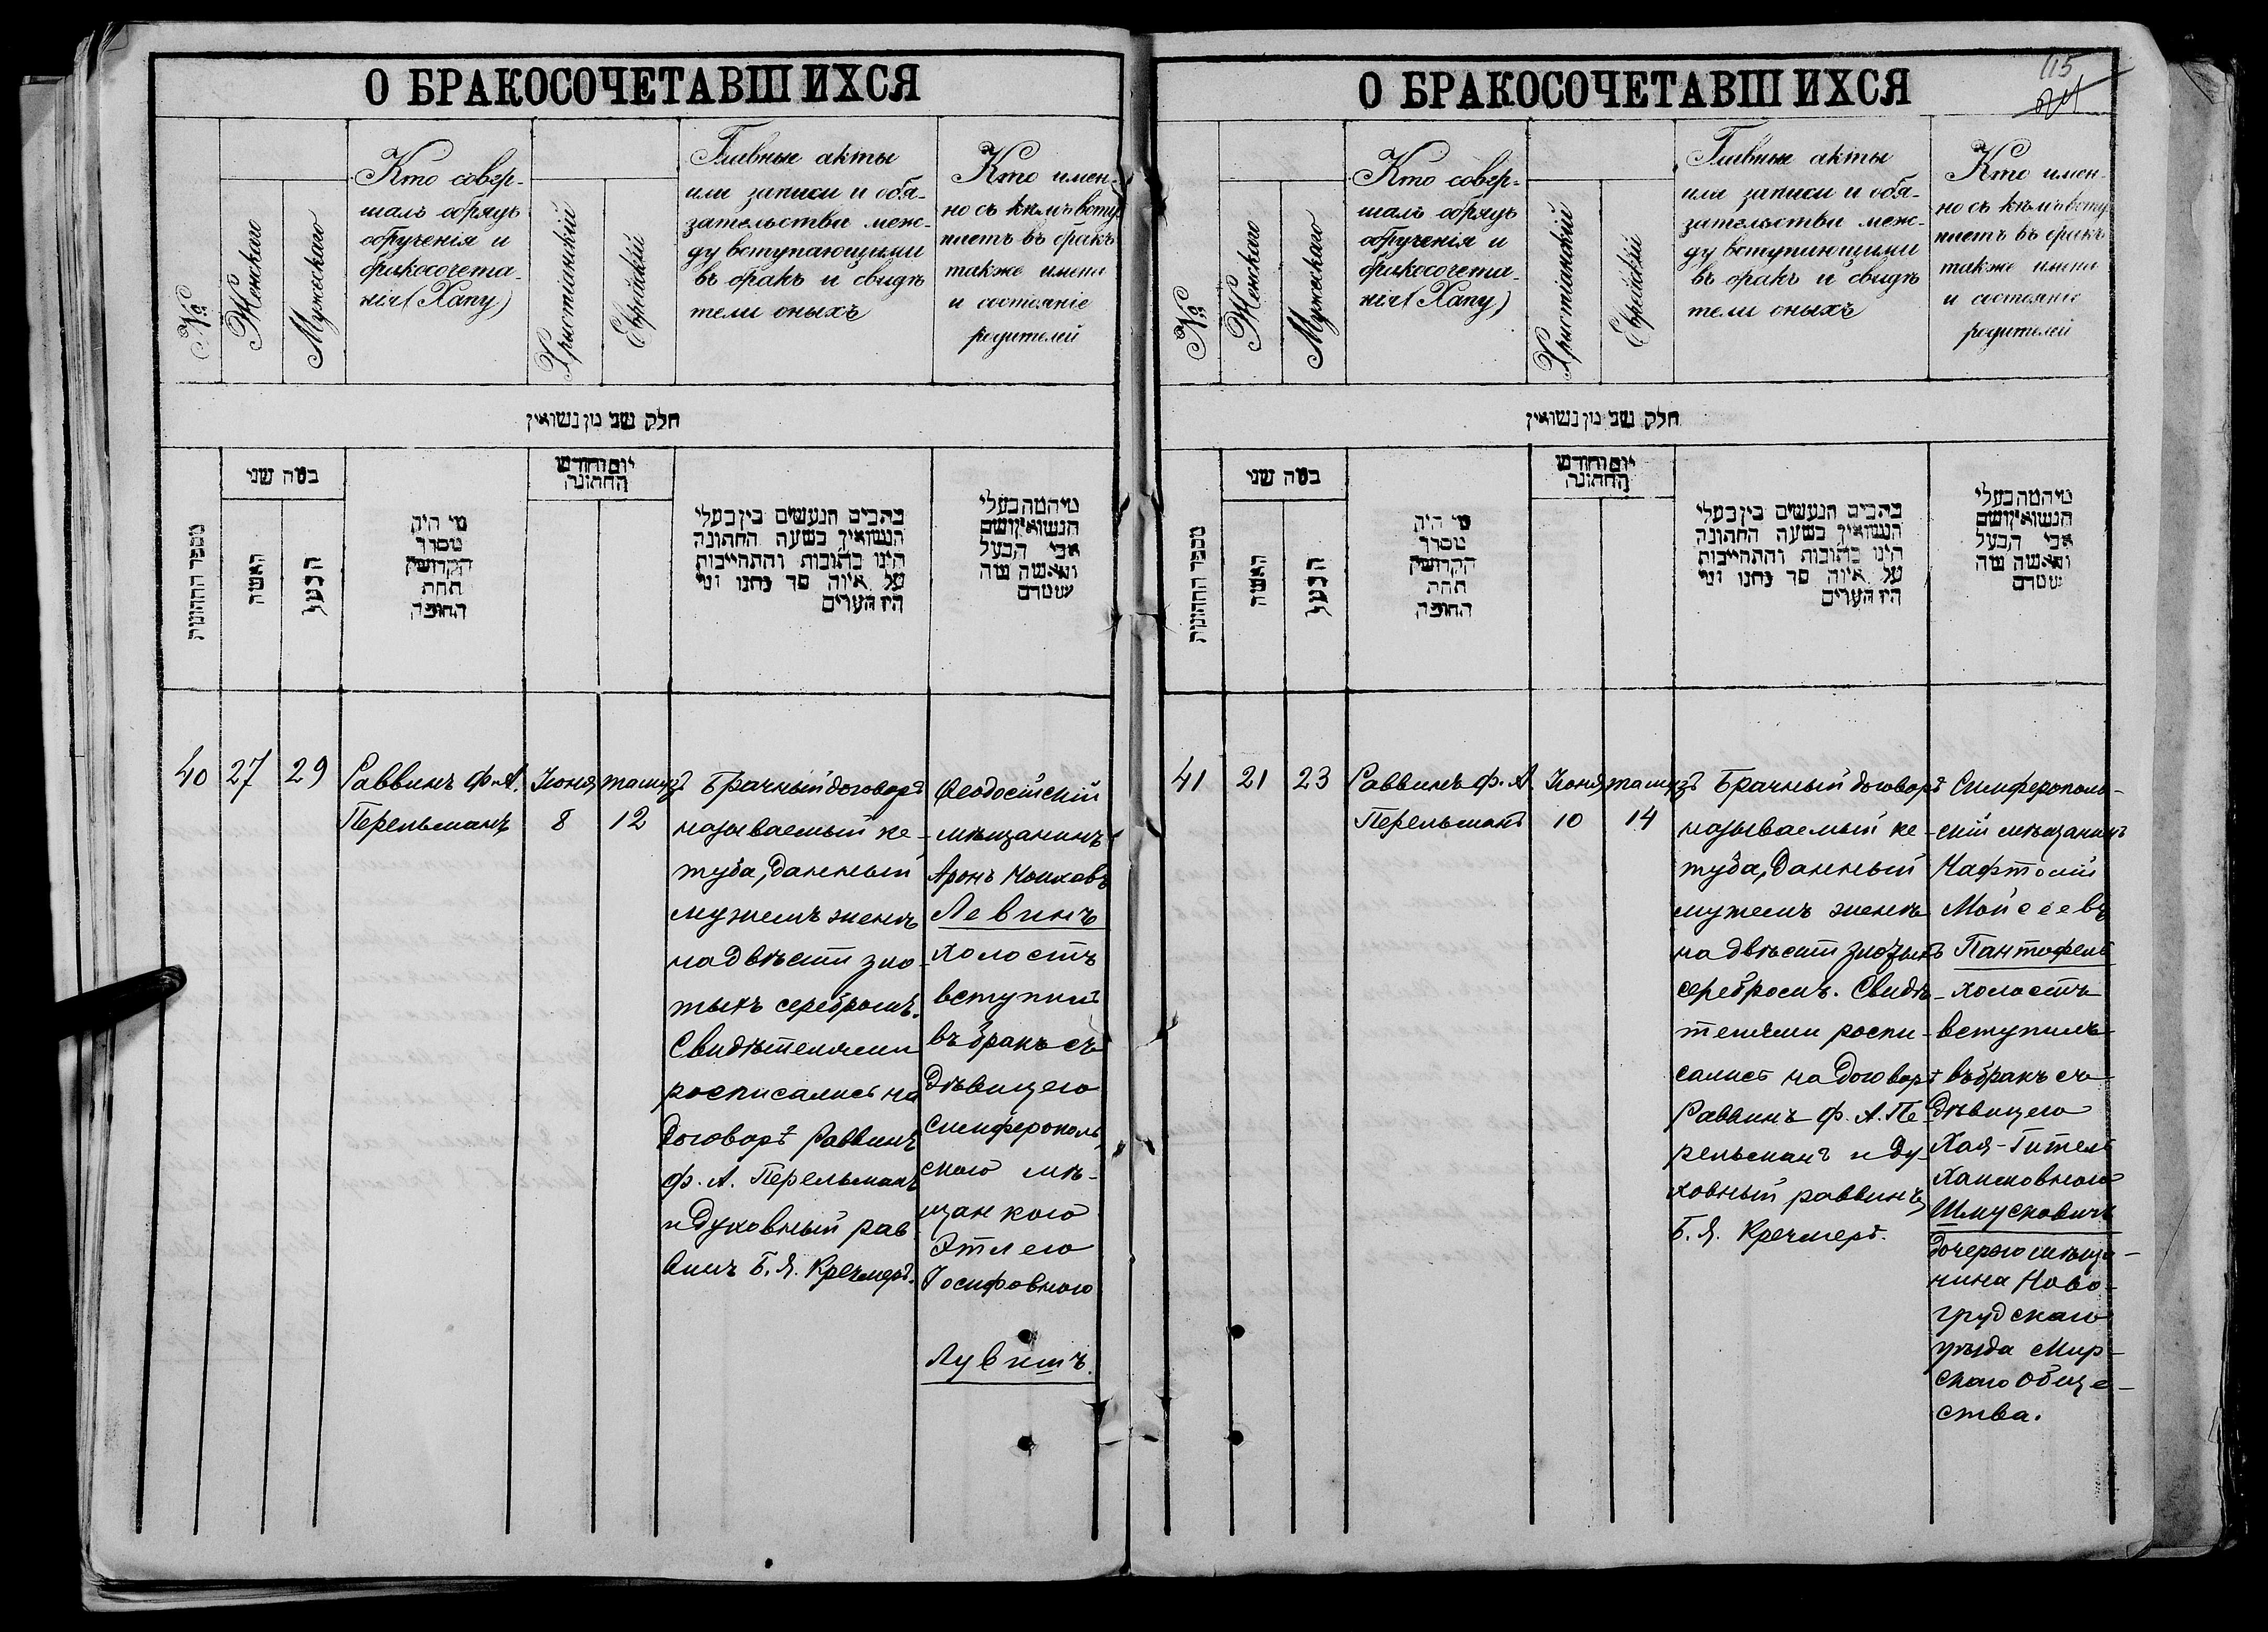 О БРАКОСОЧЕТАВШИХСЯ
№
Женскаго
Мужескаго
Кто совер-
шалъ обрядъ
обрученія и
бракосочета-
нія (Хапу)
Христіанскій
Еврейскій
Главные акты
или записи и обя-
зательства меж-
ду вступающими
въ бракъ и свидѣ
тели оныхъ
Кто имен-
но съ кѣмъ всту
паетъ въ бракъ
также имена
и состояніе
родителей
חלק שני מן נשואין
מספר החתונות
כמה שני
האשה
הבעל
מי היה
מסדר
הקדושין
תחת
החופה
יום וחודש
החתונה
כתבים הנעשים בין בעלי
הנשואין בשעה החתונה
היינו כתובות והתחייבות
על איזה סך נתנו ומי
היו העדים
מי המה בעלי
הנשואין ושם
אבי הבעל
והאשה ומה
40
27
29
Раввинъ Ф. А.
Перельманъ
Іюня
8
тамузъ
12
Брачный договоръ
называемый ке-
туба, данный
мужемъ женѣ
на двѣсти зло-
тыхъ серебромъ.
Свидѣтелями
росписались на
договорѣ Раввинъ
Ф. А. Перельманъ
и Духовный рав
винъ Б. Я. Кречмеръ.
Ѳеодосійскій
мѣщанинъ
Аронъ
Левинъ
холостъ
вступилъ
въ бракъ съ
дѣвицею
Симферополь
скою мѣ-
щанкою
Этлею
Іосифовною
Лувишъ.
О БРАКОСОЧЕТАВШИХСЯ
115
84
№
Женскаго
Мужескаго
Кто совер-
шалъ обрядъ
обрученія и
бракосочета-
нія (Хапу)
Христіанскій
Еврейскій
Главные акты
или записи и обя-
зательства меж-
ду вступающими
въ бракъ и свидѣ
тели оныхъ
Кто имен-
но съ кѣмъ всту
паетъ въ бракъ
также имена
и состояніе
родителей
חלק שני מן נשואין
מספר החתונות
כמה שני
האשה
הבעל
מי היה
מסדר
הקדושין
תחת
החופה
יום וחודש
החתונה
כתבים הנעשים בין בעלי
הנשואין בשעה החתונה
היינו כתובות והתחייבות
על איזה סך נתנו ומי
היו העדים
מי המה בעלי
הנשואין ושם
אבי הבעל
והאשה ומה
41
21
23
Раввинъ Ф. А.
Перельманъ
Іюня
10
тамузъ
14
Брачный договоръ
называемый ке-
туба, данный
мужемъ женѣ
на двѣсти злотыхъ
серебромъ. Свидѣ-
телями роспи-
сались на договорѣ
Раввинъ Ф. А. Пе-
рельманъ и Ду-
ховный раввинъ
Б. Я. Кречмеръ.
Симферополь-
скій мѣщанинъ
Нафтолій
Мойсеевъ
Пантофель
холостъ
вступилъ
въ бракъ съ
Дѣвицею
Хая-Гитель
Хаимовною
Шмусковичъ
дочерью мѣща-
нина Ново-
грудскаго
уѣзда Мир-
скаго Обще-
ства.